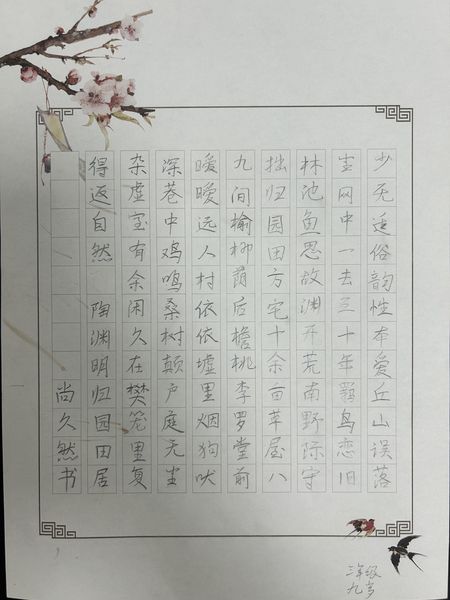 少无适俗韵性本爱丘山误落
尘网中一去三十年羁鸟恋旧
林池鱼思故渊开荒南野际守
拙归园田方宅十余亩草屋八
九间榆柳荫后檐桃李罗堂前
暧暧远人村依依墟里烟狗吠
深巷中鸡鸣桑树颠户庭无尘
杂虚室有余闲久在樊笼里复
得返自然 陶渊明归园田居
尚久然书
三年级
九岁